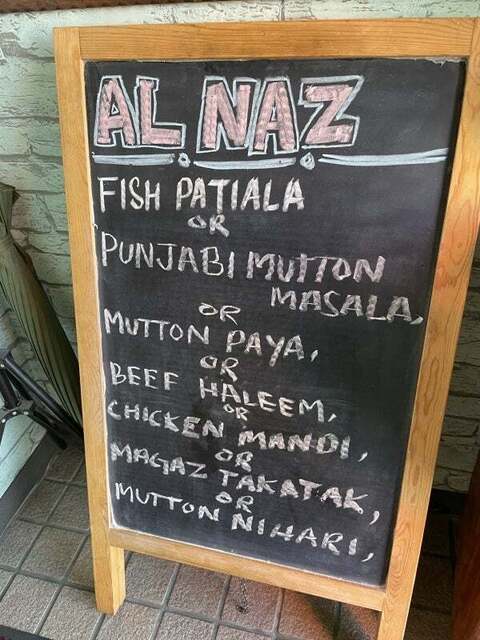 AL NAZ
FISH PATIALA
OR
PUNJABI MUTTON
MASALA,
OR
MUTTON PAYA,
OR
BEEF HALEEM,
OR
CHICKEN MANDI,
OR
MAGAZ TAKATAK,
OR
MUTTON NIHARI,